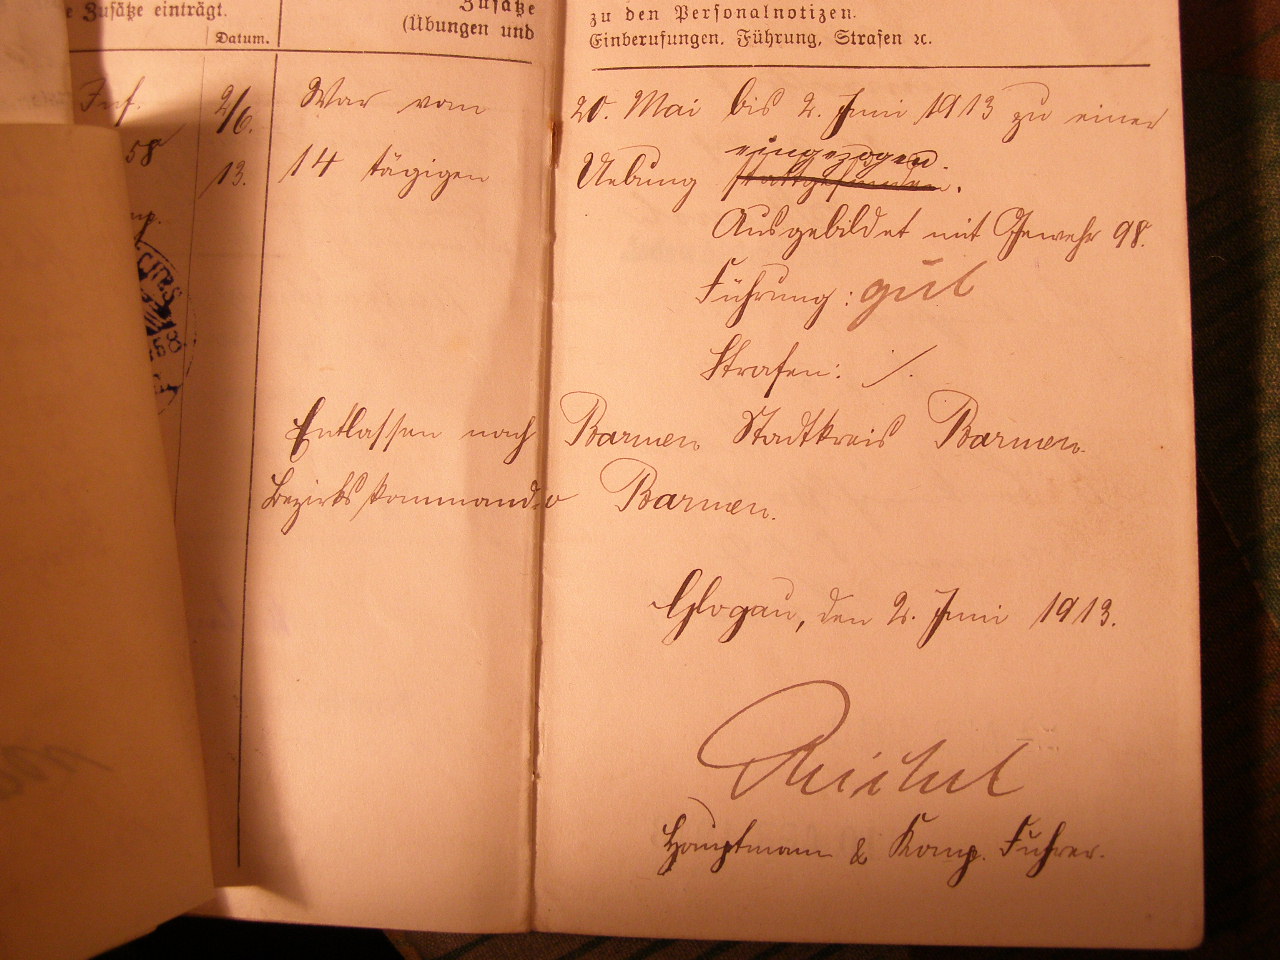 e Zusätze einträgt.
Datum.
Zusätze zu den Personalnotizen.
(Übungen und Einberufungen, Führung, Strafen ꝛc.
Inf.
2/6. War vom 20. Mai bis 2. Juni 1913 zu einer
58
eingezogen.
13. 14 tägigen Uebung stattgefunden.
Ausgebildet mit Gewehr 98.
Führung: gut
Strafen: ./.
Entlassen nach Barmen Stadtkreis Barmen.
Bezirkskommando Barmen.
Glogau, den 2. Juni 1913.
Hauptmann & Komp. Führer.